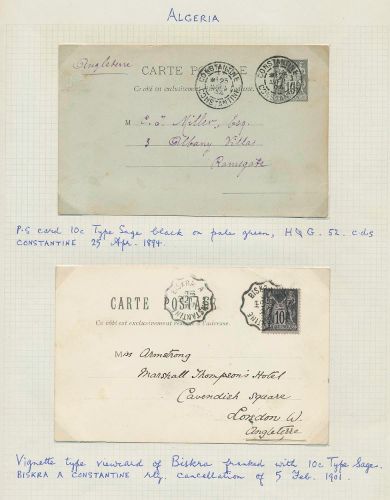 ALGERIA
Angleterre
CARTE POSTALE
Ce côté est exclusivement
CONSTANTINE
CONSTANTINE
M
Miller, Esq.
3 Albany Villas
Ramsgate
P.S card 10c Type Sage black on pale green, H&G. 52. c.d.s
CONSTANTINE 25 Apr. 1894.
BISKRA A CONSTANTINE
BISKRA
10
CARTE POSTALE
Ce côté est exclusivement réservé à l'adresse.
Miss Armstrong
Marshall Thompson's Hotel
Cavendish Square
London W.
Angleterre
Vignette type viewcard of Biskra franked with 10c Type Sage.
BISKRA A CONSTANTINE rly. cancellation of 5 Feb. 1901.